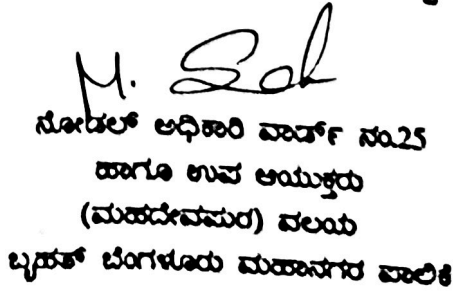 ನೋಡಲ್ ಅಧಿಕಾರಿ ವಾರ್ಡ್ ನಂ.25
ಹಾಗೂ ಉಪ ಆಯುಕ್ತರು
(ಮಹದೇವಪುರ) ವಲಯ
ಬೃಹತ್ ಬೆಂಗಳೂರು ಮಹಾನಗರ ಪಾಲಿಕೆ